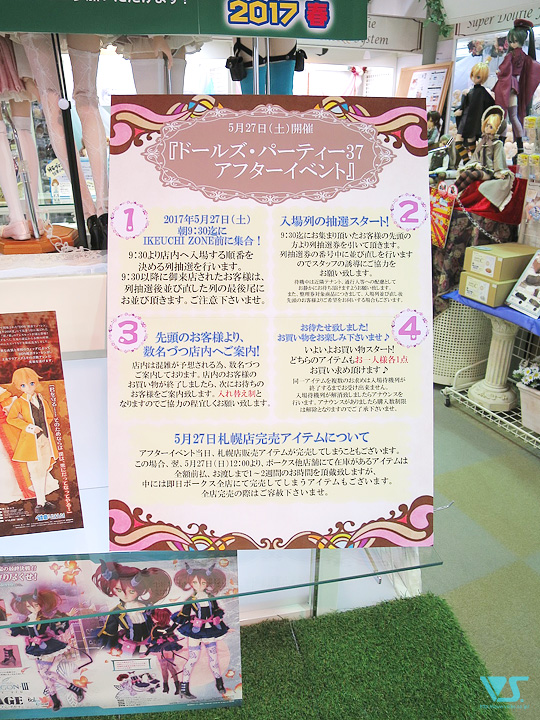 2017 春
Super Dollfie
System
5月27日(土)開催
『ドールズ・パーティー37
アフターイベント』
1
2017年5月27日(土)
朝9:30迄に
IKEUCHI ZONE前に集合！
9:30より店内へ入場する順番を
決める列抽選を行います。
9:30以降に御来店されたお客様は、
列抽選後並び直した列の最後尾に
お並び頂きます。ご注意下さいませ。
2
入場列の抽選スタート！
9:30迄にお集まり頂いたお客様の先頭の
方より列抽選券を引いて頂きます。
列抽選券の番号中に並び直しを行います
のでスタッフの誘導にご協力を
お願い致します。
3
先頭のお客様より、
数名づつ店内へご案内！
店内は混雑が予想される為、数名づつ
ご案内しております。店内のお客様の
お買い物が終了しましたら、次にお待ちの
お客様をご案内致します。入れ替え制と
なりますのでご協力の程宜しくお願い致します。
4
お待たせ致しました！
お買い物をお楽しみ下さいませ♪
いよいよお買い物スタート！
どちらのアイテムもお一人様各1点
お買い求め頂けます♪
同一アイテムを複数のお求めは入場待機列が
終了するまでお受け出来ません。
入場待機列が解消致しましたらアナウンスを
行います。アナウンスがありましたら購入数制限
は解除となりますのでご了承下さいませ。
5月27日札幌店完売アイテムについて
アフターイベント当日、札幌店販売アイテムが完売してしまうこともございます。
この場合、翌、5月27日(日)12:00より、ボークス他店舗にて在庫があるアイテムは
全額前払、お渡しまで1～2週間のお時間を頂戴致しますが、
中には即日ボークス全店にて完売してしまうアイテムもございます。
全店完売の際はご容赦下さいませ。